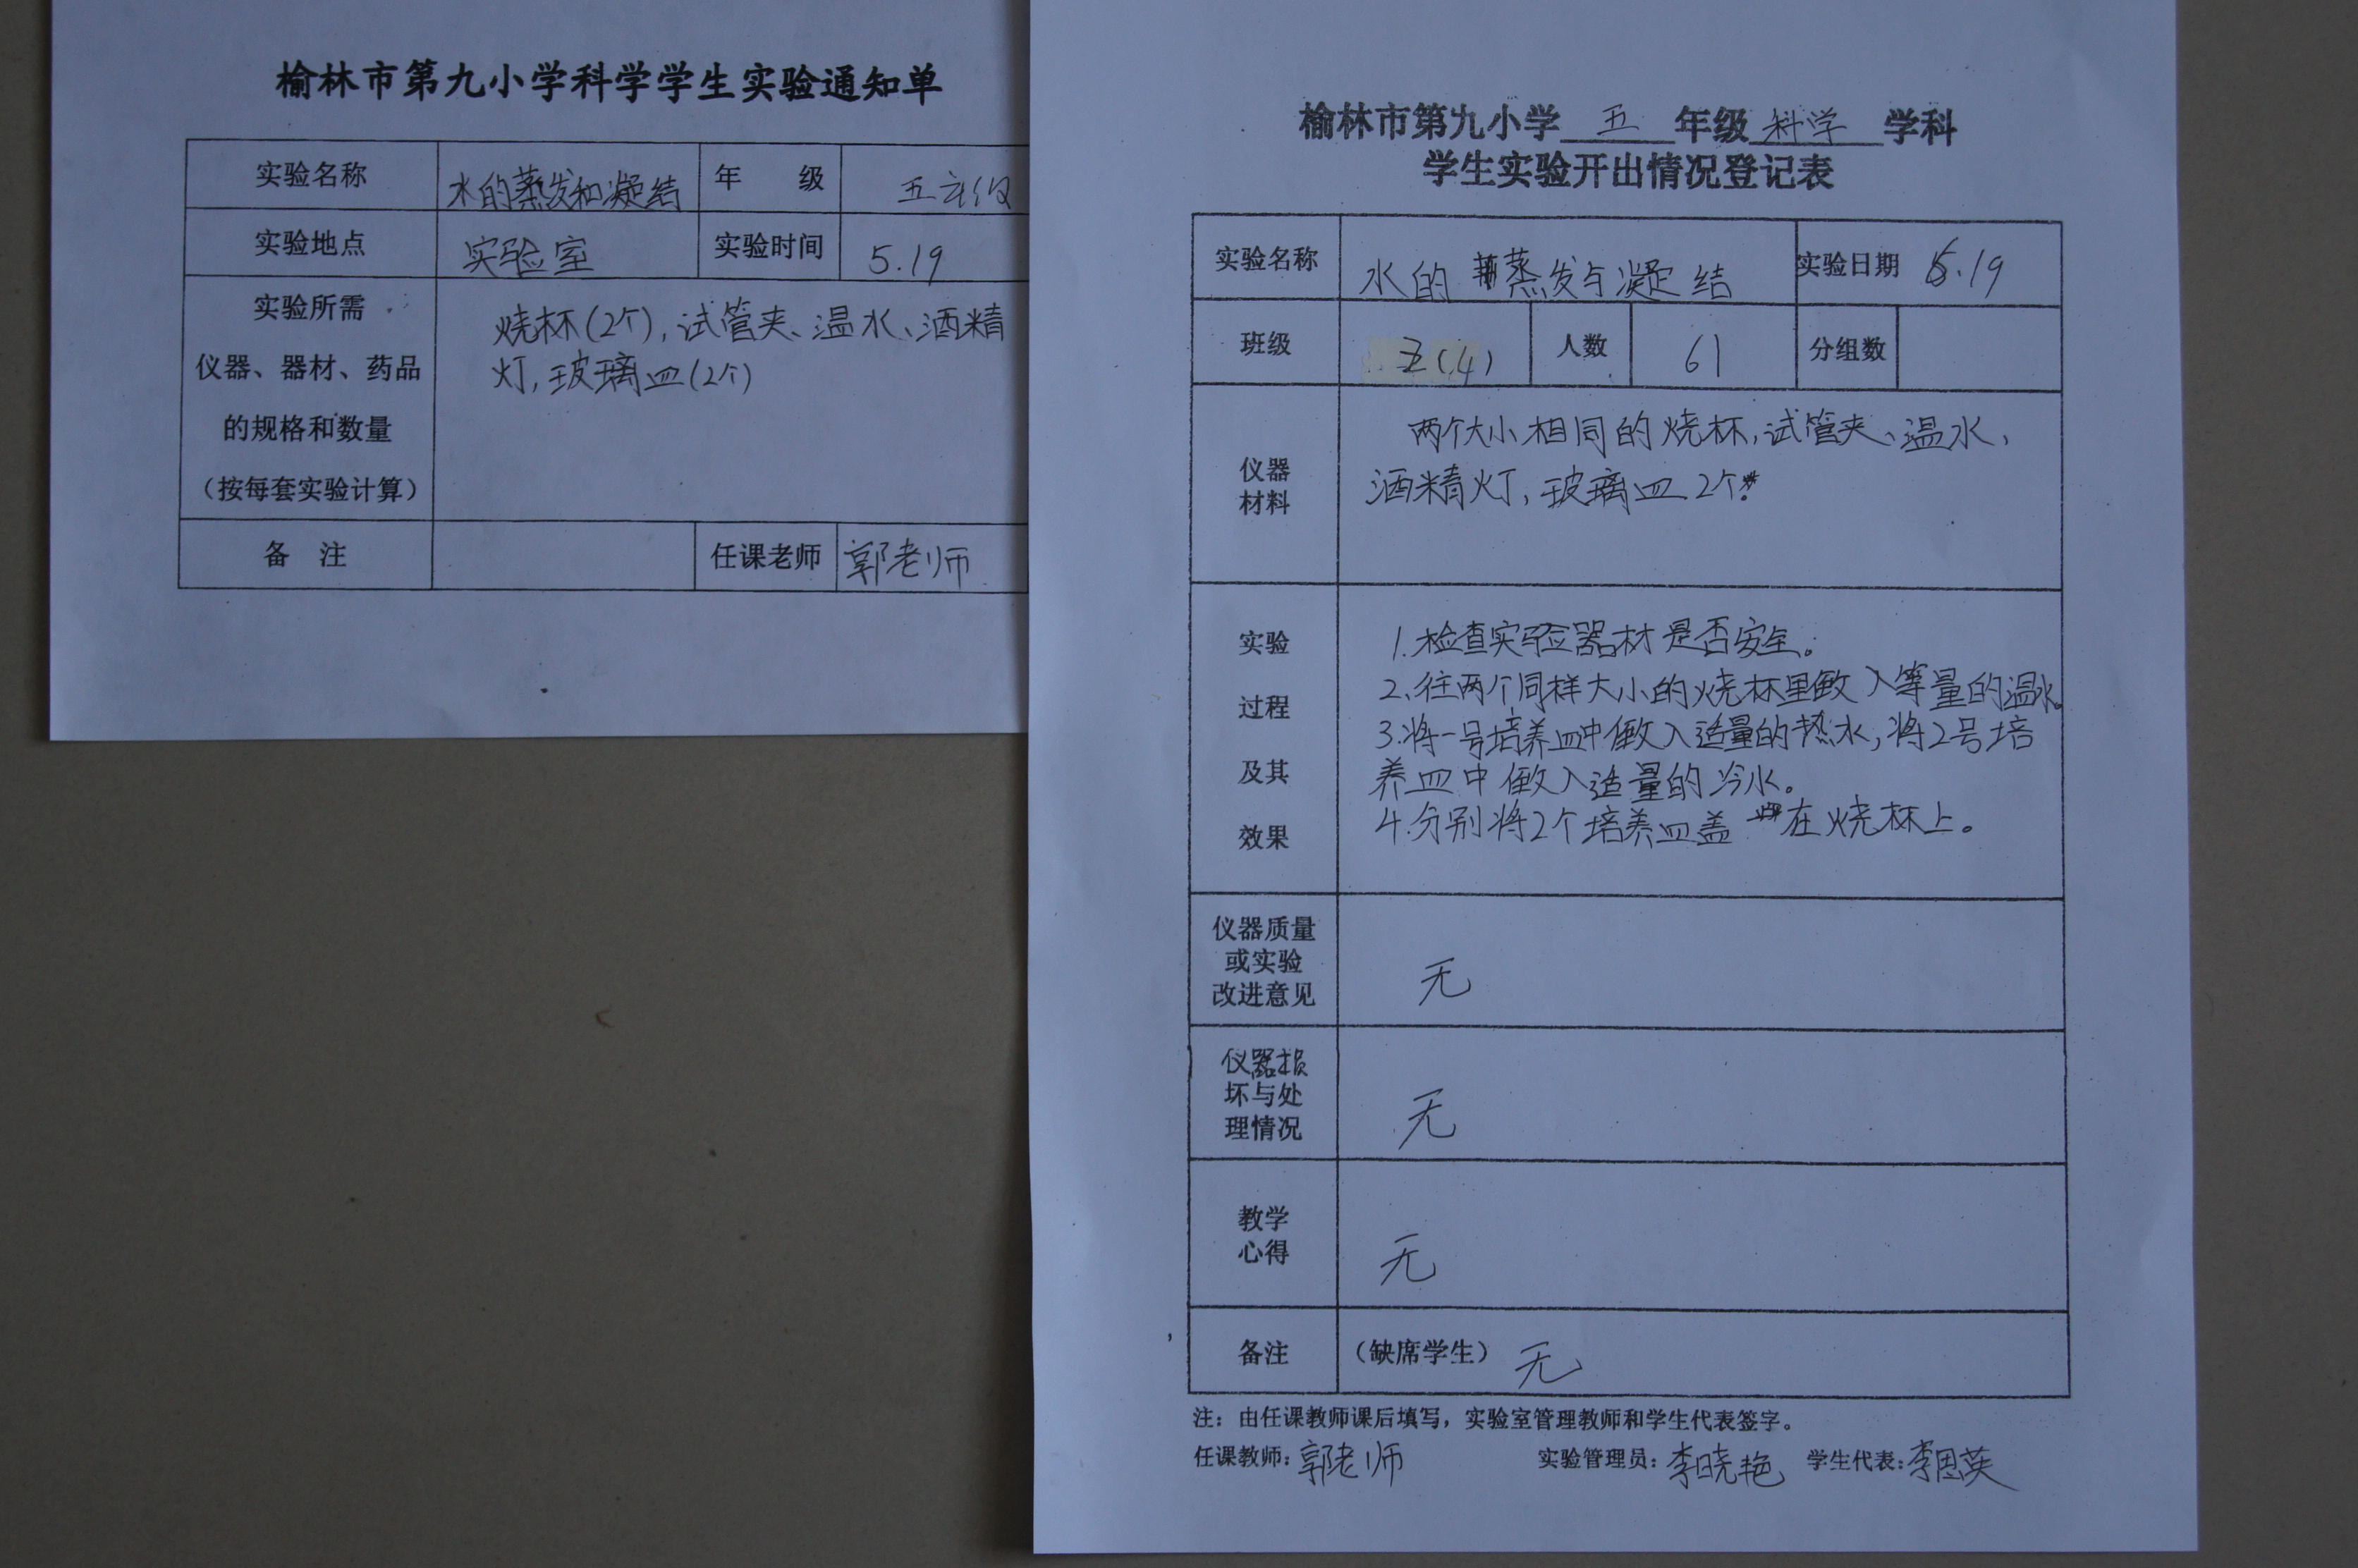 榆林市第九小学科学学生实验通知单
实验名称 水的蒸发和凝结 年 级 五年级
实验地点 实验室 实验时间 5.19
实验所需
仪器、器材、药品
的规格和数量
（按每套实验计算）
烧杯(2个),试管夹、温水、酒精
灯,玻璃皿(2个)
备 注 任课老师 郭老师
榆林市第九小学 五 年级 科学 学科
学生实验开出情况登记表
实验名称 水的蒸发与凝结 实验日期 5.19
班级 五(4) 人数 61 分组数
仪器
材料
两个大小相同的烧杯,试管夹、温水、
酒精灯,玻璃皿2个.
实验
过程
及其
效果
1.检查实验器材是否安全。
2.往两个同样大小的烧杯里入等量的温水。
3.将一号培养皿中入适量的热水,将2号培
养皿中入适量的冷水。
4.分别将2个培养皿盖在烧杯上。
仪器质量
或实验
改进意见
无
仪器损
坏与处
理情况
无
教学
心得
无
备注 （缺席学生） 无
注：由任课教师课后填写，实验室管理教师和学生代表签字。
任课教师：郭老师 实验管理员：李晓艳 学生代表：李思英